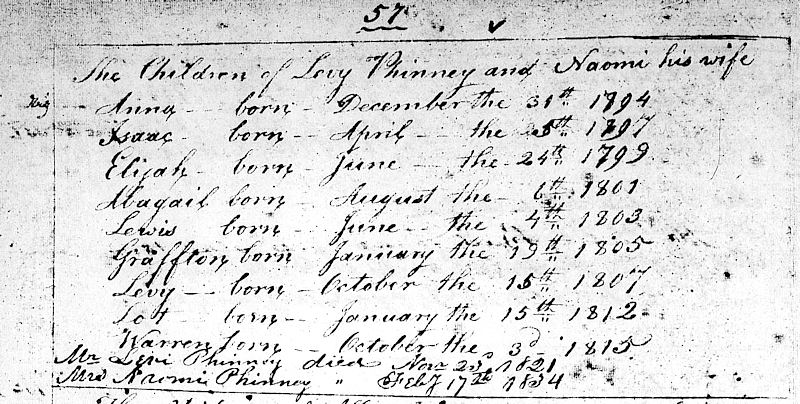 57
The Children of Levy Phinney and Naomi his wife
Anna born December the 31th 1794
Isaac born April the 1797
Elijah born June the 24th 1799
Abagail born August the 6th 1801
Lewis born June the 4th 1803
Graffton born January the 19th 1805
Levy born October the 15th 1807
Lot born January the 15th 1812
Warren born October the 3d 1815
Mr Levi Phinney died Nov. 23d 1821
Mrs Naomi Phinney " Feby 17th 1834